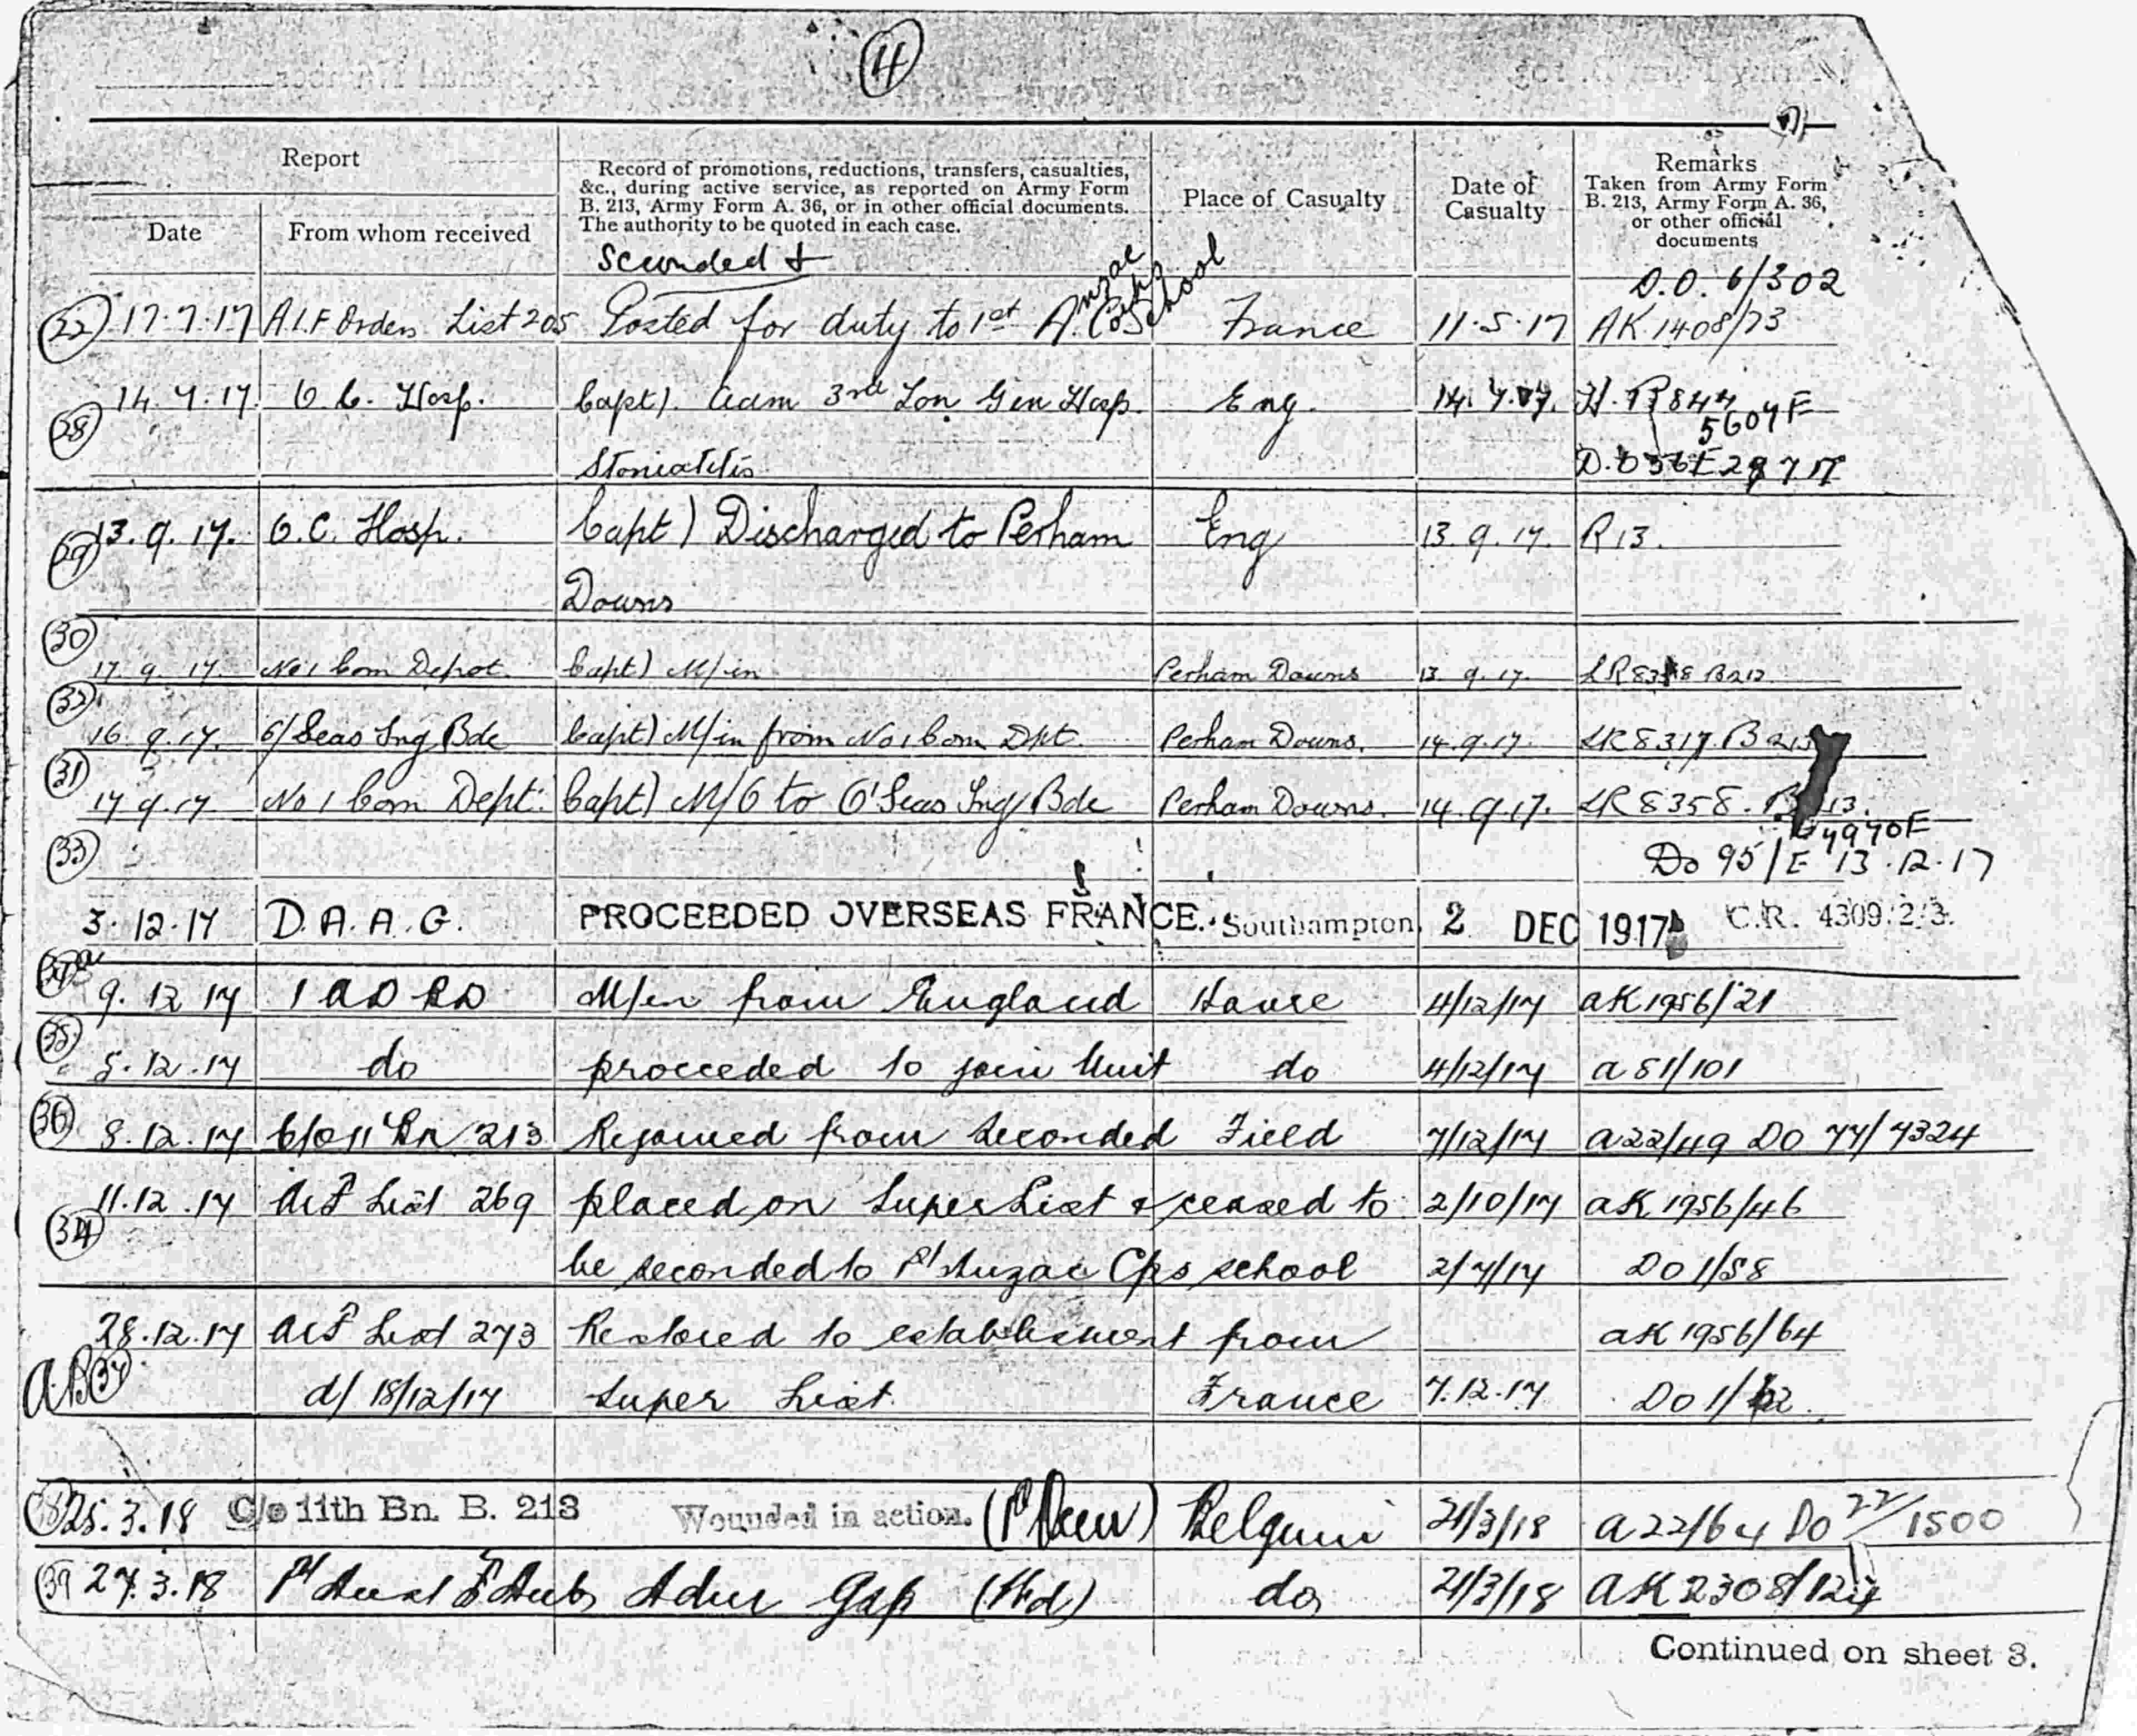 4
Report
Record of promotions, reductions, transfers, casualties,
&c., during active service, as reported on Army Form
B. 213, Army Form A. 36, or in other official documents.
The authority to be quoted in each case.
Place of Casualty
Date of
Casualty
Remarks
Taken from Army Form
B. 213, Army Form A. 36,
or other official
documents
Date From whom received
Seconded &
D.O. 6/302
22 17.7.17 A.I.F Orders List 205 Posted for duty to 1st Anzac Corps School France 11.5.17 AK 1408/73
14.7.17. O.C. Hosp. Capt). Adm 3rd Lon Gen Hosp. Eng. 14.7.17.
28 5604E
Stomatitis
29 13.9.17. O.C. Hosp. Capt) Discharged to Perham Eng 13.9.17. R13.
Downs
30 17.9.17. No 1 Com Depot. Capt) M/in Perham Downs 13.9.17. B213
32 16.9.17. O/Seas Tng Bde Capt) M/in from No 1 Com Dpt. Perham Downs. 14.9.17. LR 8317. B213
31 17.9.17. No 1 Com Dept. Capt) M/O to O'Seas Tng Bde Perham Downs. 14.9.17. LR 8358.
4970E
33 Do 95/E 13.12.17
3.12.17 D.A.A.G. PROCEEDED OVERSEAS FRANCE. Southampton. 2 DEC 1917 C.R. 4309/2/3.
9.12.17 1 A D B D M/in from England Havre 4/12/17 AK 1956/21
35 5.12.17 do proceeded to join Unit do 4/12/17 A 81/101
36 8.12.17 C/O 11 Bn 213 Rejoined from Seconded Field 7/12/17 A22/49 DO 77/7324
11.12.17 AIF List 269 placed on Super List & ceased to 2/10/17 AK 1956/46
34 be seconded to 1st Anzac Cps school 2/7/17 DO 1/58
28.12.17 AIF List 273 Restored to establishment from AK 1956/64
37 d/ 18/12/17 Super List. France 7.12.17 DO 1/62.
25.3.18 C/o 11th Bn. B. 213 Wounded in action. Belgium 21/3/18 A22/64 DO 22/1500
39 27.3.18 Adm Gas (Wd) do 21/3/18 AK 2308/124
Continued on sheet 3.